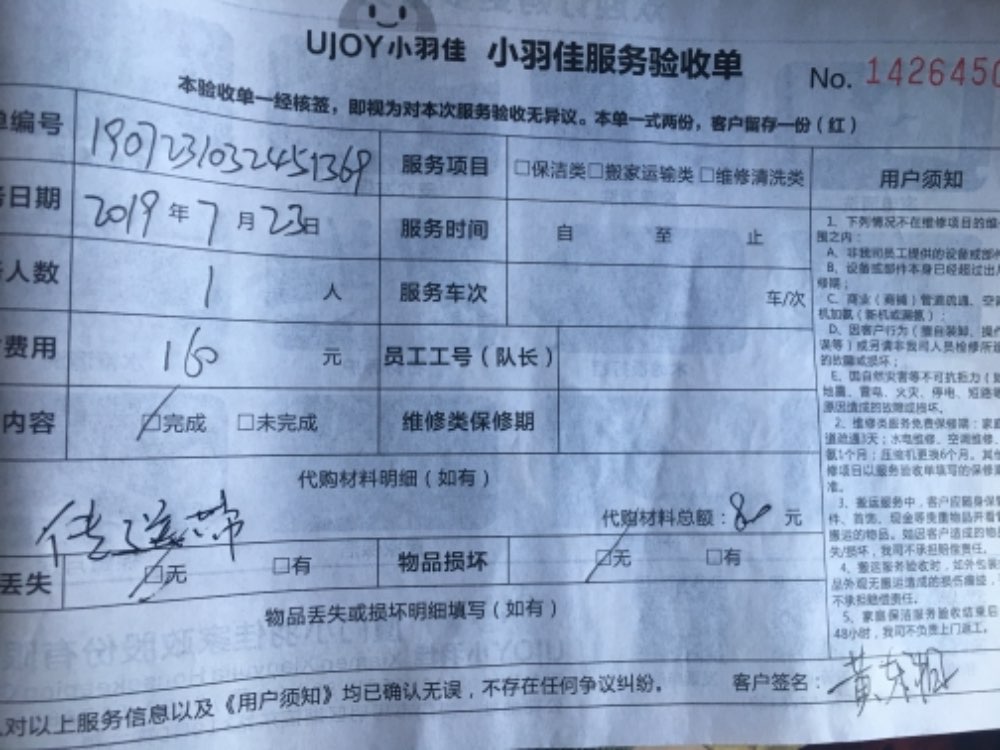 UJOY小羽佳 小羽佳服务验收单 No. 1426450
本验收单一经核签，即视为对本次服务验收无异议。本单一式两份，客户留存一份（红）
单编号 1907231032451369 服务项目 □保洁类□搬家运输类□维修清洗类 用户须知
务日期 2019年7月23日 服务时间 自 至 止
人数 1 人 服务车次 车/次
费用 160 元 员工工号（队长）
内容 □完成 □未完成 维修类保修期
代购材料明细（如有）
传送带 代购材料总额：80 元
丢失 □无 □有 物品损坏 □无 □有
物品丢失或损坏明细填写（如有）
对以上服务信息以及《用户须知》均已确认无误，不存在任何争议纠纷。 客户签名：黄
1、下列情况不在维修项目的维
围之内：
A、非我司员工提供的设备或部件
B、设备或部件本身已经超过出
修期；
C、商业（商铺）管道疏通、空调
机加氨（新机或漏氨）；
D、因客户行为（擅自装卸、操作
误等）或另请非我司人员检修所造
的故障或损坏；
E、因自然灾害等不可抗拒力（如
地震、雷电、火灾、停电、短路等
原因造成的故障或损坏。
2、维修类服务免费保修期：家庭
道疏通3天；水电维修、空调维修、
氨1个月；压缩机更换6个月。其他
修项目以服务验收单填写的保修期
准。
3、搬运服务中，客户应随身保管
件、首饰、现金等贵重物品并看管
搬运的物品。如因客户造成的物品
失/损坏，我司不承担赔偿责任。
4、搬运服务验收时，如外包装
品外观无搬运造成的损伤痕迹，
不承担赔偿责任。
5、家庭保洁服务验收结束后
48小时，我司不负责上门返工。